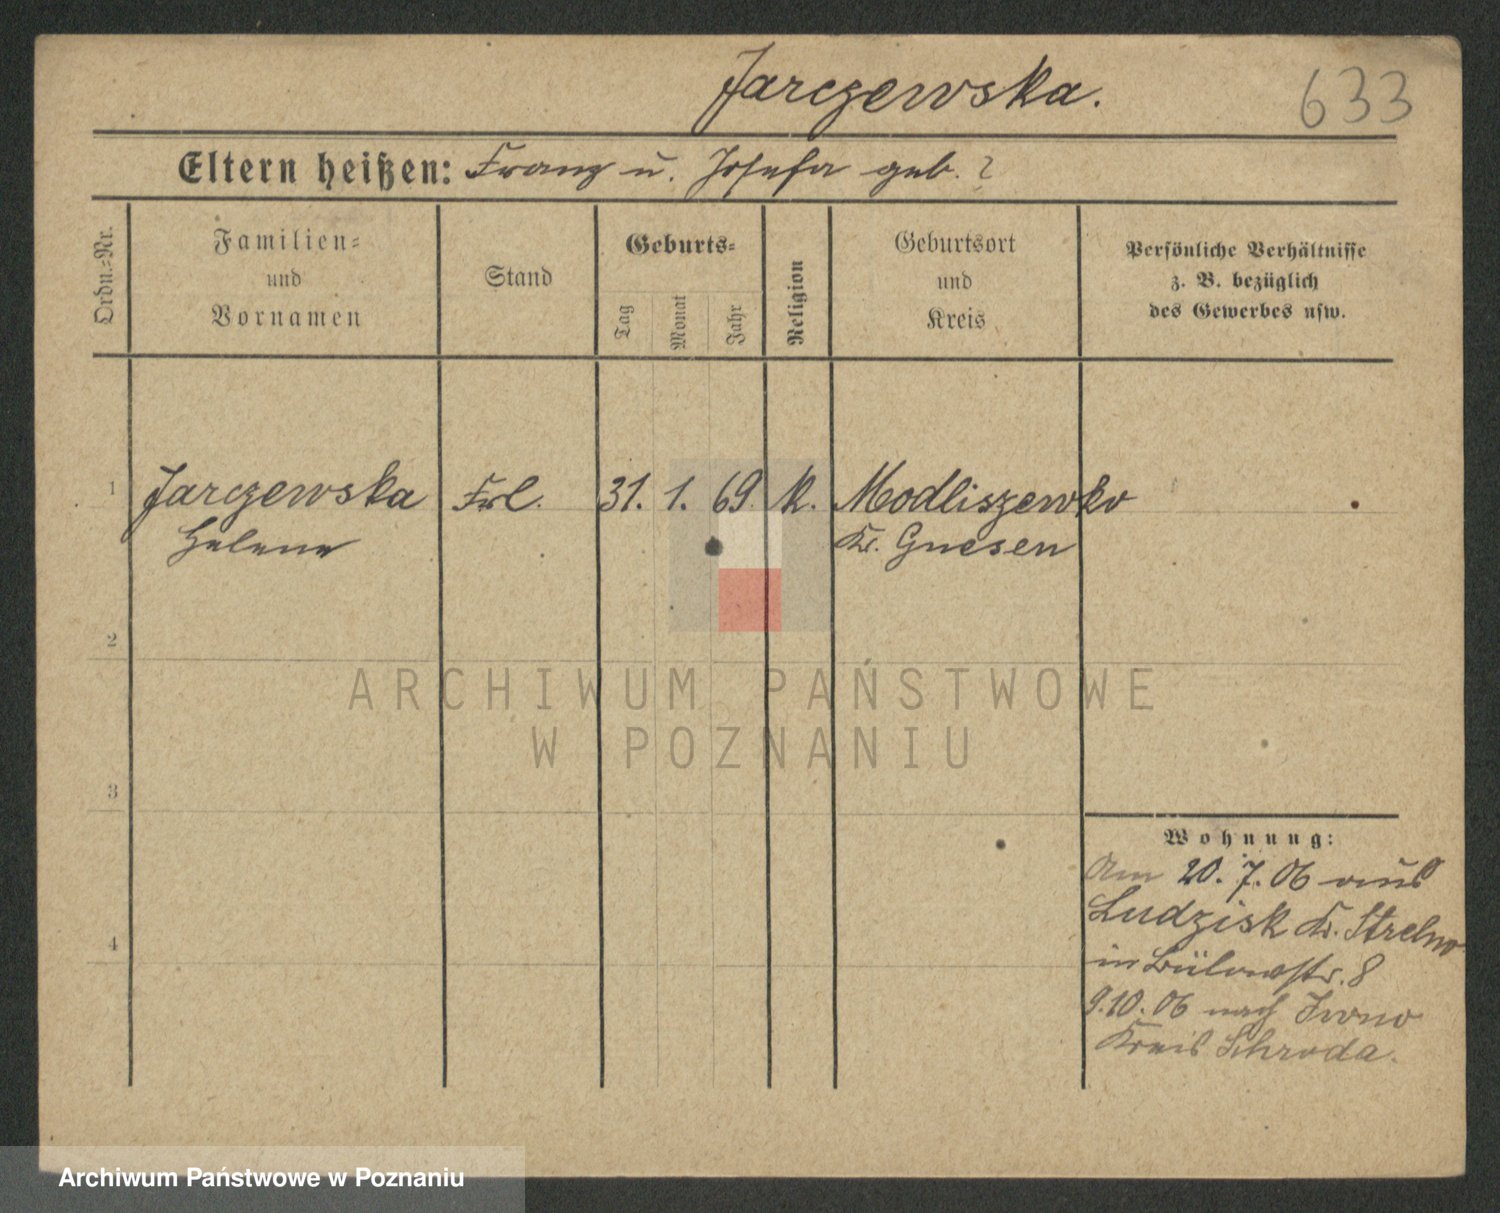 Jarczewska.
633
Eltern heißen: Franz u. Josefa geb. ?
Ordn.=Nr.
Familien=
und
Vornamen
Stand
Geburts=
Tag
Monat
Jahr
Religion
Geburtsort
und
Kreis
Persönliche Verhältnisse
z. B. bezüglich
des Gewerbes usw.
1 Jarczewska Frl. 31. 1. 69. k. Modliszewko
Helene Kr. Gnesen
2
3
4
Wohnung:
Am 20. 7. 06 aus
Ludzisk Kr. Strelno
in Bülowstr. 8
9.10. 06 nach Iwno
Kreis Schroda.
ARCHIWUM PAŃSTWOWE
W POZNANIU
Archiwum Państwowe w Poznaniu